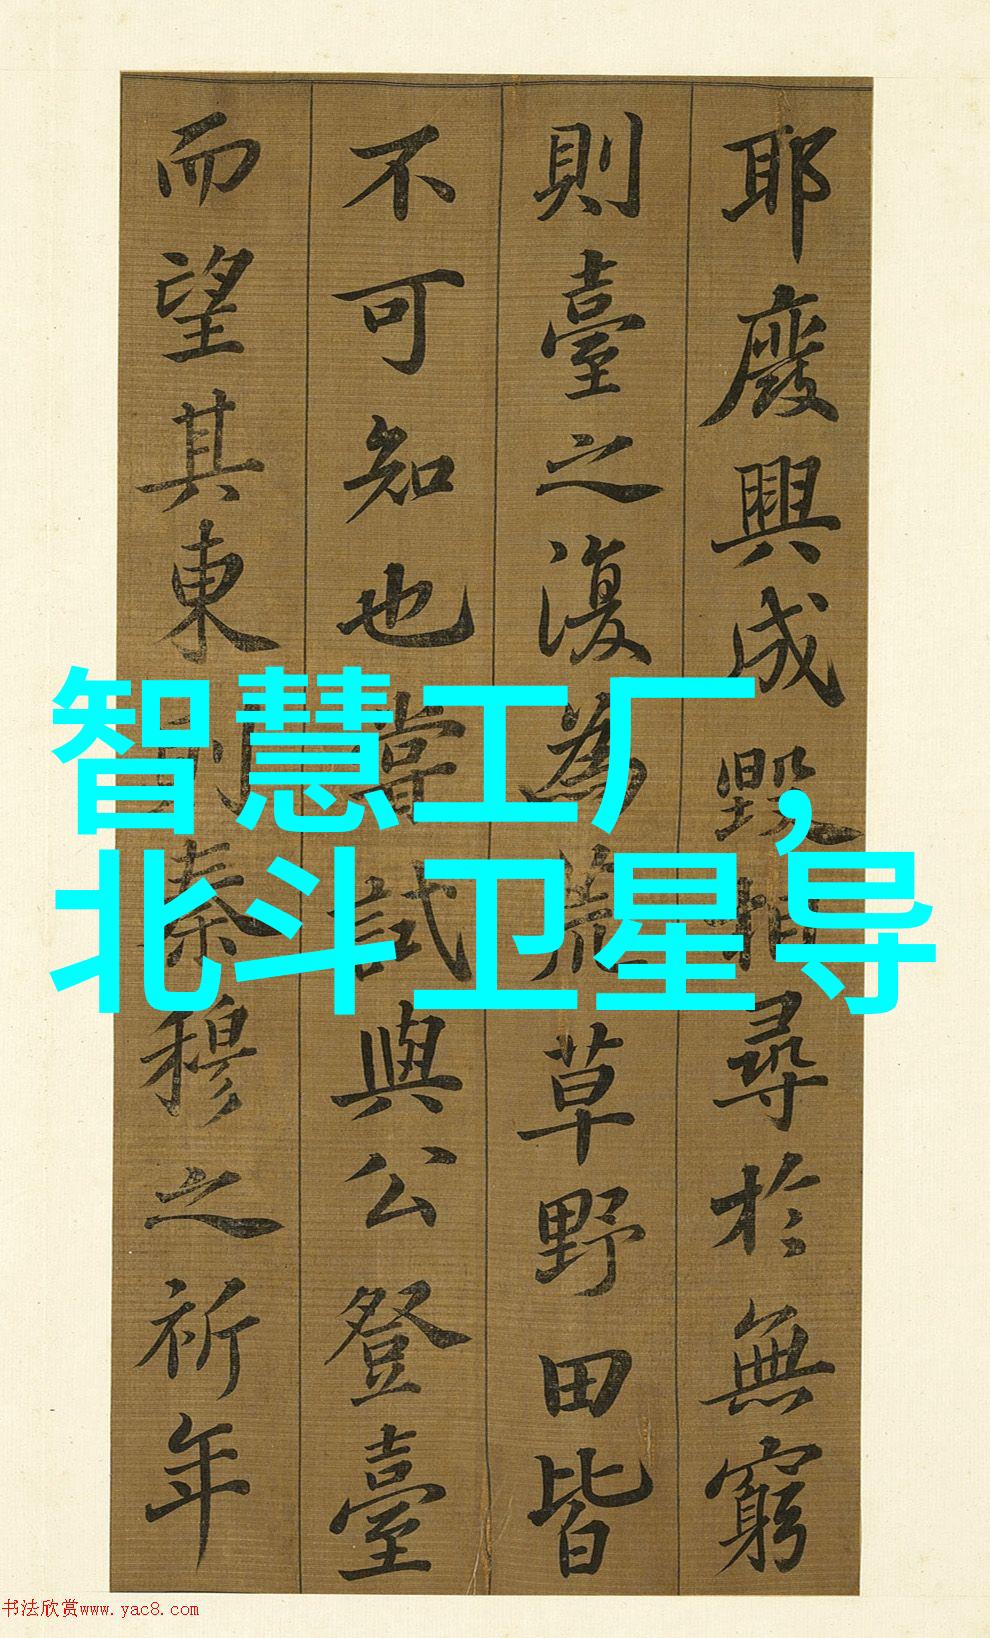 耶廢興成毀相尋於無窮
則臺之復為荒草野田皆
不可知也嘗試與公登臺
而望其東則秦穆之祈年
智慧工厂，
北斗卫星导
书法欣赏www.yac8.com